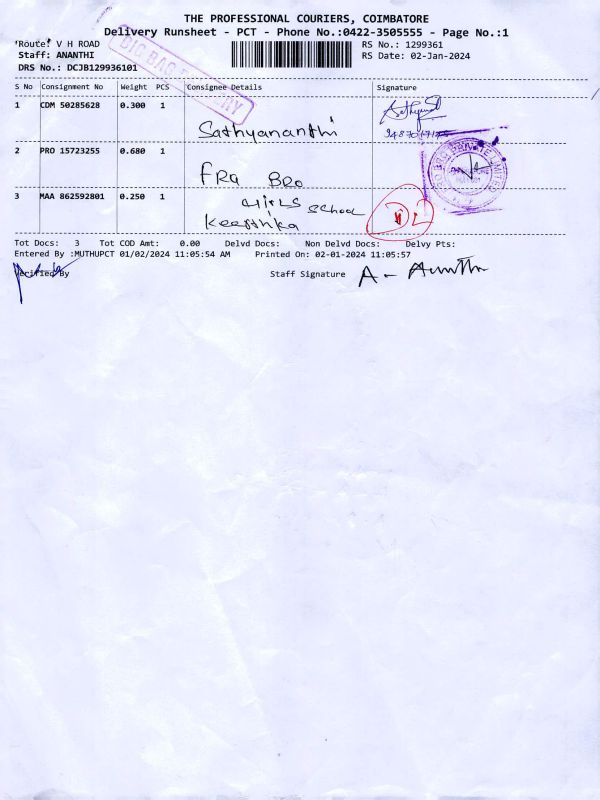 THE PROFESSIONAL COURIERS, COIMBATORE
Delivery Runsheet - PCT - Phone No.:0422-3505555 - Page No.:1
Route: V H ROAD
Staff: ANANTHI
DRS No.: DCJB129936101
RS No.: 1299361
RS Date: 02-Jan-2024
BIG BAG DELIVERY
S No Consignment No Weight PCS Consignee Details Signature
1 CDM 50285628 0.300 1
Sathyananthi
2 PRO 15723255 0.680 1
FRU BRO
PRIVATE LIMITED
3 MAA 862592801 0.250 1
Girls School
Keerthika
DL
Tot Docs: 3 Tot COD Amt: 0.00 Delvd Docs: Non Delvd Docs: Delvy Pts:
Entered By :MUTHUPCT 01/02/2024 11:05:54 AM Printed On: 02-01-2024 11:05:57
Verified By Staff Signature A-